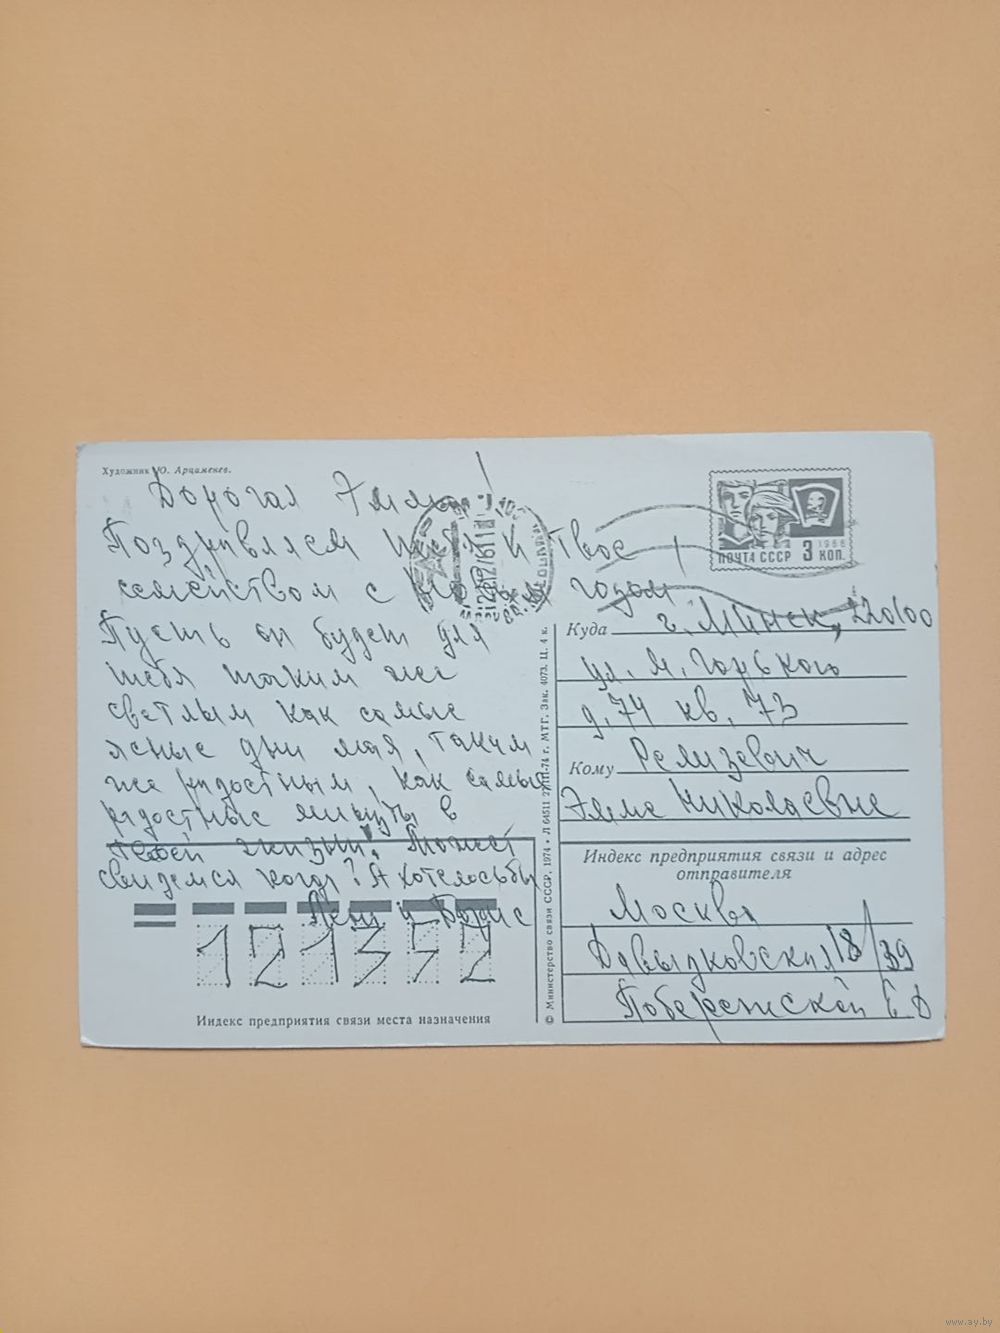 Художник Ю. Арцаменев.
Дорогая Эмма!
Поздравляем тебя и твое
семейством с Новым годом
Пусть он будет для
тебя таким же
светлым как самые
ясные дни мая, таким
же радостным, как самые
радостные минуты в
твоей жизни! Может
свидемся когда? А хотелось бы
и Борис
121352
Индекс предприятия связи места назначения
© Министерство связи СССР, 1974 • Л 64511 27/III-74 г. МТГ. Зак. 4073. Ц. 4 к.
ПОЧТА СССР 3 КОП.
1966
Куда г. Минск, 220100
ул. М. Горького
д. 74 кв. 73
Кому Ремизевич
Эмме Николаевне
Индекс предприятия связи и адрес
отправителя
Москва
Давыдковская 18/39
Побережской Е. Д
www.ay.by